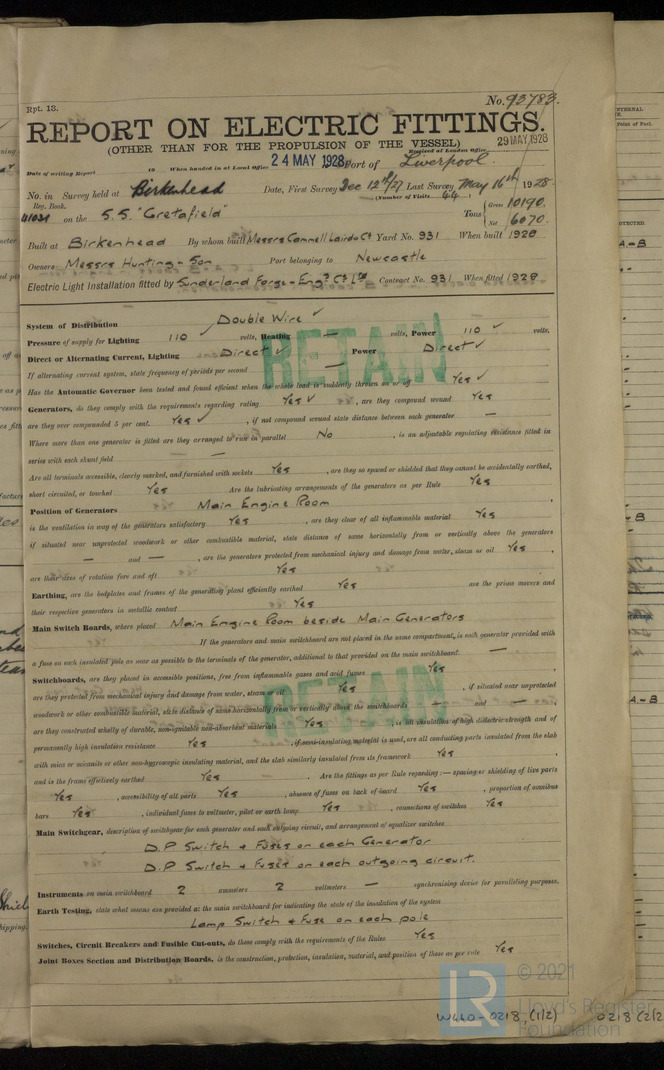 Rpt. 13.
No. 93783.
REPORT ON ELECTRIC FITTINGS.
(OTHER THAN FOR THE PROPULSION OF THE VESSEL)
Received at London Office 29 MAY 1928
Date of writing Report 19 When handed in at Local Office 24 MAY 1928 Port of Liverpool.
No. in Survey held at Birkenhead Date, First Survey Dec 12th/27 Last Survey May 16th 1928
Reg. Book. (Number of Visits 64)
41031 on the S.S. "Gretafield" Tons Gross 10190. Net 6070.
Built at Birkenhead By whom built Messrs Cammell Laird & Co Yard No. 931 When built 1928
Owners Messrs Hunting & Son Port belonging to Newcastle
Electric Light Installation fitted by Sunderland Forge & Engg Co Ltd Contract No. 931 When fitted 1928
System of Distribution Double Wire ✓
Pressure of supply for Lighting 110 volts, Heating — volts, Power 110 ✓ volts,
Direct or Alternating Current, Lighting Direct ✓ Power Direct ✓
If alternating current system, state frequency of periods per second —
Has the Automatic Governor been tested and found efficient when the whole load is suddenly thrown on or off Yes ✓
Generators, do they comply with the requirements regarding rating Yes ✓, are they compound wound Yes
are they over compounded 5 per cent. Yes ✓, if not compound wound state distance between each generator —
Where more than one generator is fitted are they arranged to run in parallel No, is an adjustable regulating resistance fitted in
series with each shunt field —
Are all terminals accessible, clearly marked, and furnished with sockets Yes, are they so spaced or shielded that they cannot be accidentally earthed,
short circuited, or touched Yes Are the lubricating arrangements of the generators as per Rule Yes
Position of Generators Main Engine Room
is the ventilation in way of the generators satisfactory Yes, are they clear of all inflammable material Yes
if situated near unprotected woodwork or other combustible material, state distance of same horizontally from or vertically above the generators
— and —, are the generators protected from mechanical injury and damage from water, steam or oil Yes,
are their axes of rotation fore and aft Yes
Earthing, are the bedplates and frames of the generating plant efficiently earthed Yes are the prime movers and
their respective generators in metallic contact Yes
Main Switch Boards, where placed Main Engine Room beside Main Generators
If the generators and main switchboard are not placed in the same compartment, is each generator provided with
a fuse on each insulated pole as near as possible to the terminals of the generator, additional to that provided on the main switchboard —
Switchboards, are they placed in accessible positions, free from inflammable gases and acid fumes Yes,
are they protected from mechanical injury and damage from water, steam or oil Yes, if situated near unprotected
woodwork or other combustible material, state distance of same horizontally from or vertically above the switchboards — and —
are they constructed wholly of durable, non-ignitable non-absorbent materials Yes, is all insulation of high dielectric strength and of
permanently high insulation resistance Yes, if semi-insulating material is used, are all conducting parts insulated from the slab
with mica or micanite or other non-hygroscopic insulating material, and the slab similarly insulated from its framework Yes,
and is the frame effectively earthed Yes. Are the fittings as per Rule regarding:— spacing or shielding of live parts
Yes, accessibility of all parts Yes, absence of fuses on back of board Yes, proportion of omnibus
bars Yes, individual fuses to voltmeter, pilot or earth lamp Yes, connections of switches Yes
Main Switchgear, description of switchgear for each generator and each outgoing circuit, and arrangement of equaliser switches
D.P Switch & Fuses on each Generator
D.P Switch & Fuses on each outgoing circuit.
Instruments on main switchboard 2 ammeters 2 voltmeters — synchronising device for paralleling purposes.
Earth Testing, state what means are provided at the main switchboard for indicating the state of the insulation of the system
Lamp Switch & Fuse on each pole
Switches, Circuit Breakers and Fusible Cut-outs, do these comply with the requirements of the Rules Yes
Joint Boxes Section and Distribution Boards, is the construction, protection, insulation, material, and position of these as per rule Yes
RETAIN
RETAIN
© 2021
LR
Lloyd's Register
Foundation
W660-0218 (1/2)
0218 (2/2